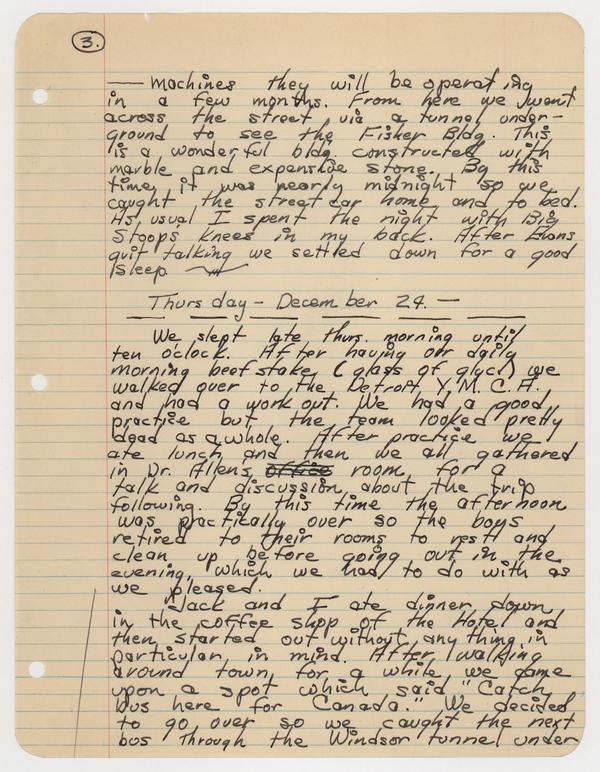 3.
— machines they will be operating
in a few months. From here we went
across the street via a tunnel under-
ground to see the Fisker Bldg. This
is a wonderful bldg. constructed with
marble and expensive stone. By this
time it was nearly midnight so we
caught the street car home and to bed.
As usual I spent the night with Big
Stoops' knees in my back. After Evans
quit talking we settled down for a good
sleep.
Thursday – December 24. —
We slept late thurs. morning until
ten o'clock. After having our daily
morning beef stake, (glass of glyc.) we
walked over to the Detroit Y.M.C.A.
and had a work out. We had a good
practice but the team looked pretty
dead as a whole. After practice we
ate lunch and then we all gathered
in Dr. Allens office room for a
talk and discussion about the trip
following. By this time the afternoon
was practically over so the boys
retired to their rooms to rest and
clean up before going out in the
evening, which we had to do with as
we pleased.
Jack and I ate dinner down
in the coffee shop of the Hotel and
then started out without any thing in
particular in mind. After walking
around town for a while we came
upon a spot which said "Catch
bus here for Canada." We decided
to go over so we caught the next
bus through the Windsor tunnel under